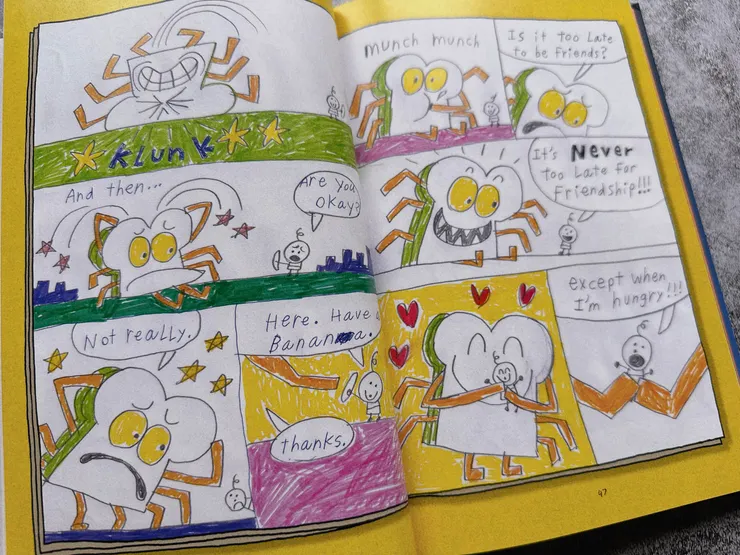 KLUNK
And then...
Are You
Okay?
Not really.
Here. Have a
Banana.
thanks.
munch munch
Is it too Late
to be Friends?
It's Never
too Late for
Friendship!!!
except when
I'm hungry!!!
47